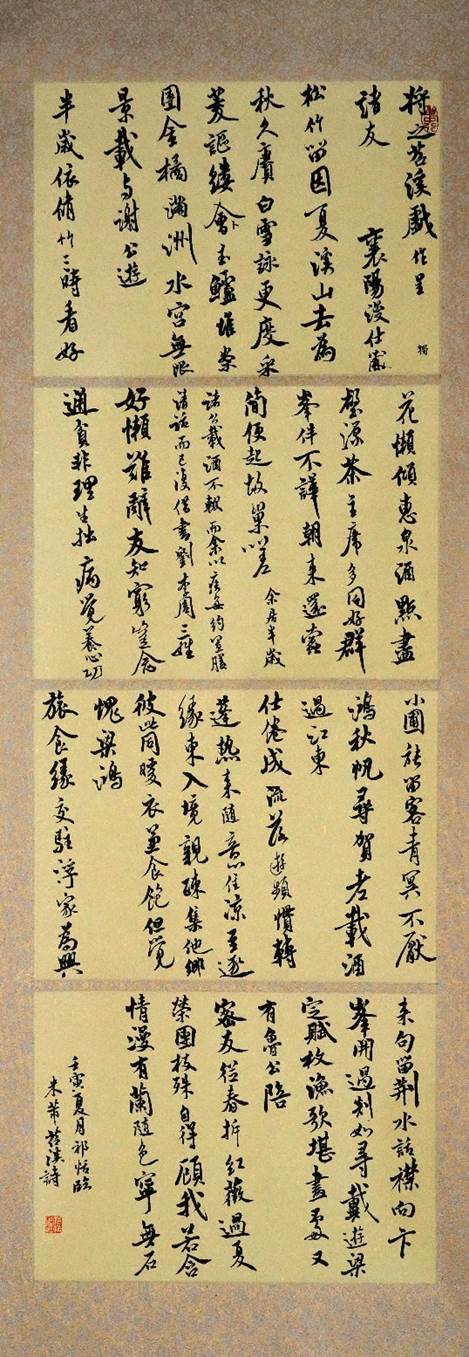 將之苕溪戲作呈
獨
諸友 襄陽漫仕黻
松竹留因夏溪山去為
秋久賡白雪詠更度采
菱謳縷會玉鱸堆案
團金橘滿洲水宮無限
景載与謝公遊
半歲依脩竹三時看好
花懶傾惠泉酒點盡
壑源茶主席多同好群
峯伴不譁朝來還蠹
簡便起故巢嗟 余居半歲
諸公載酒不輟而余以疾每約置膳
清話而已復借書劉李周三姓
好懶難辭友知窮豈念
通貧非理生拙病覺養心功
小圃能留客青冥不厭
鴻秋帆尋賀老載酒
過江東
仕倦成流落遊頻慣轉
蓬熱來隨意住涼至逐
緣東入境親疎集他鄉
彼此同暖衣並食飽但覺
愧梁鴻
旅食緣交駐浮家為興
來句留荆水話襟向卞
峯開過剡如尋戴遊梁
定賦枚漁歌堪畫處又
有魯公陪
密友從春拆紅薇過夏
榮團枝殊自得顧我若含
情漫有蘭隨色寧無石
壬寅夏月祁恬臨
米芾苕溪詩